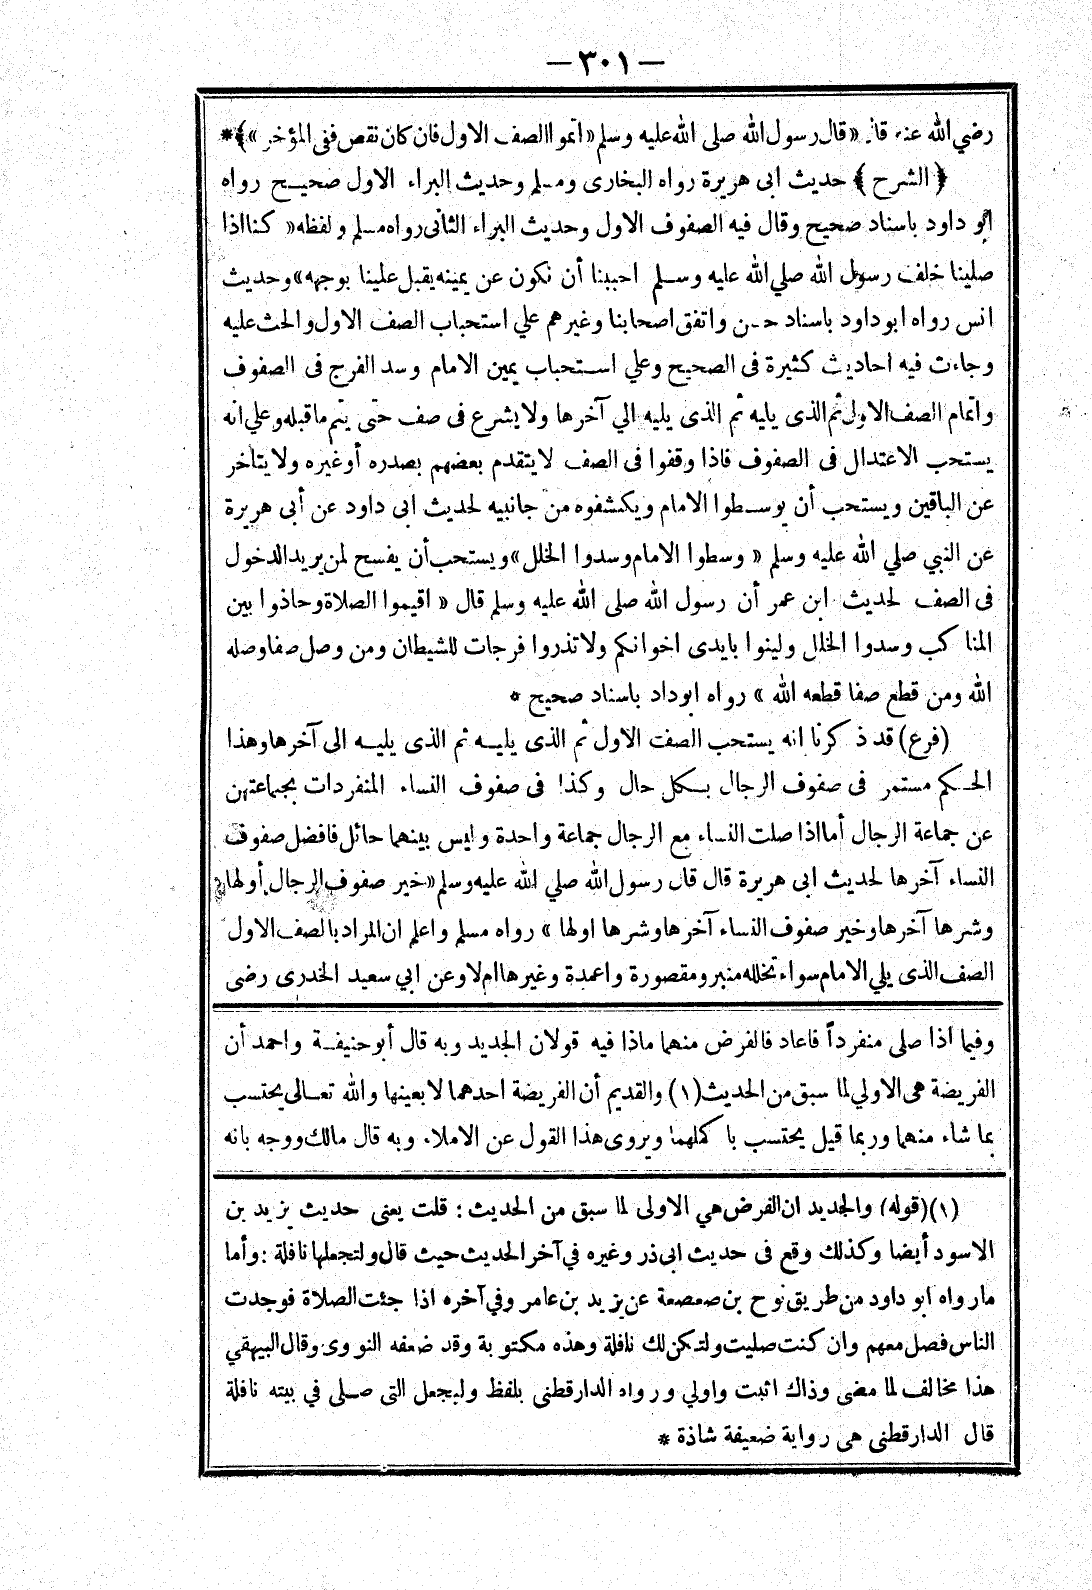 — ٣٠١ —
رضي الله عنه قال «قال رسول الله صلى الله عليه وسلم «اتموا الصف الاول فان كان نقص ففى المؤخر»﴾*
﴿الشرح﴾ حديث ابى هريرة رواه البخارى ومسلم وحديث البراء الاول صحيح رواه
ابو داود باسناد صحيح وقال فيه الصفوف الاول وحديث البراء الثانى رواه مسلم ولفظه «كنا اذا
صلينا خلف رسول الله صلي الله عليه وسلم احببنا أن نكون عن يمينه يقبل علينا بوجهه» وحديث
انس رواه ابو داود باسناد حسن واتفق اصحابنا وغيرهم علي استحباب الصف الاول والحث عليه
وجاءت فيه احاديث كثيرة فى الصحيح وعلي استحباب يمين الامام وسد الفرج فى الصفوف
واتمام الصف الاول ثم الذى يليه ثم الذى يليه الي آخرها ولا يشرع فى صف حتى يتم ما قبله وعلي انه
يستحب الاعتدال فى الصفوف فاذا وقفوا فى الصف لا يتقدم بعضهم بصدره أو غيره ولا يتأخر
عن الباقين ويستحب أن يوسطوا الامام ويكنفوه من جانبيه لحديث ابى داود عن أبى هريرة
عن النبي صلي الله عليه وسلم «وسطوا الامام وسدوا الخلل» ويستحب أن يفسح لمن يريد الدخول
فى الصف لحديث ابن عمر أن رسول الله صلى الله عليه وسلم قال «اقيموا الصلاة وحاذوا بين
المناكب وسدوا الخلل ولينوا بايدى اخوانكم ولا تذروا فرجات للشيطان ومن وصل صفا وصله
الله ومن قطع صفا قطعه الله» رواه ابو داد باسناد صحيح *
(فرع) قد ذكرنا انه يستحب الصف الاول ثم الذى يليه ثم الذى يليه الى آخرها وهذا
الحكم مستمر فى صفوف الرجال بكل حال وكذا فى صفوف النساء المنفردات بجماعتهن
عن جماعة الرجال أما اذا صلت النساء مع الرجال جماعة واحدة وليس بينهما حائل فافضل صفوف
النساء آخرها لحديث ابى هريرة قال قال رسول الله صلي الله عليه وسلم «خير صفوف الرجال أولها
وشرها آخرها وخير صفوف النساء آخرها وشرها اولها» رواه مسلم واعلم ان المراد بالصف الاول
الصف الذى يلي الامام سواء تخلله منبر ومقصورة واعمدة وغيرها ام لا وعن ابي سعيد الخدرى رضى
وفيما اذا صلى منفرداً فاعاد فالفرض منهما ماذا فيه قولان الجديد وبه قال أبو حنيفة واحمد أن
الفريضة هى الاولي لما سبق من الحديث (١) والقديم أن الفريضة احدهما لا بعينها والله تعالى يحتسب
بما شاء منهما وربما قيل يحتسب باكملهما ويروى هذا القول عن الاملاء وبه قال مالك ووجه بانه
(١) (قوله) والجديد ان الفرض هي الاولى لما سبق من الحديث: قلت يعنى حديث يزيد بن
الاسود أيضا وكذلك وقع فى حديث ابى ذر وغيره في آخر الحديث حيث قال ولتجعلها نافلة: وأما
ما رواه ابو داود من طريق نوح بن صعصعة عن يزيد بن عامر وفي آخره اذا جئت الصلاة فوجدت
الناس فصل معهم وان كنت صليت ولتكن لك نافلة وهذه مكتوبة وقد ضعفه النووى وقال البيهقي
هذا مخالف لما مضى وذاك اثبت واولي ورواه الدارقطنى بلفظ وليجعل التى صلى في بيته نافلة
قال الدارقطنى هى رواية ضعيفة شاذة *